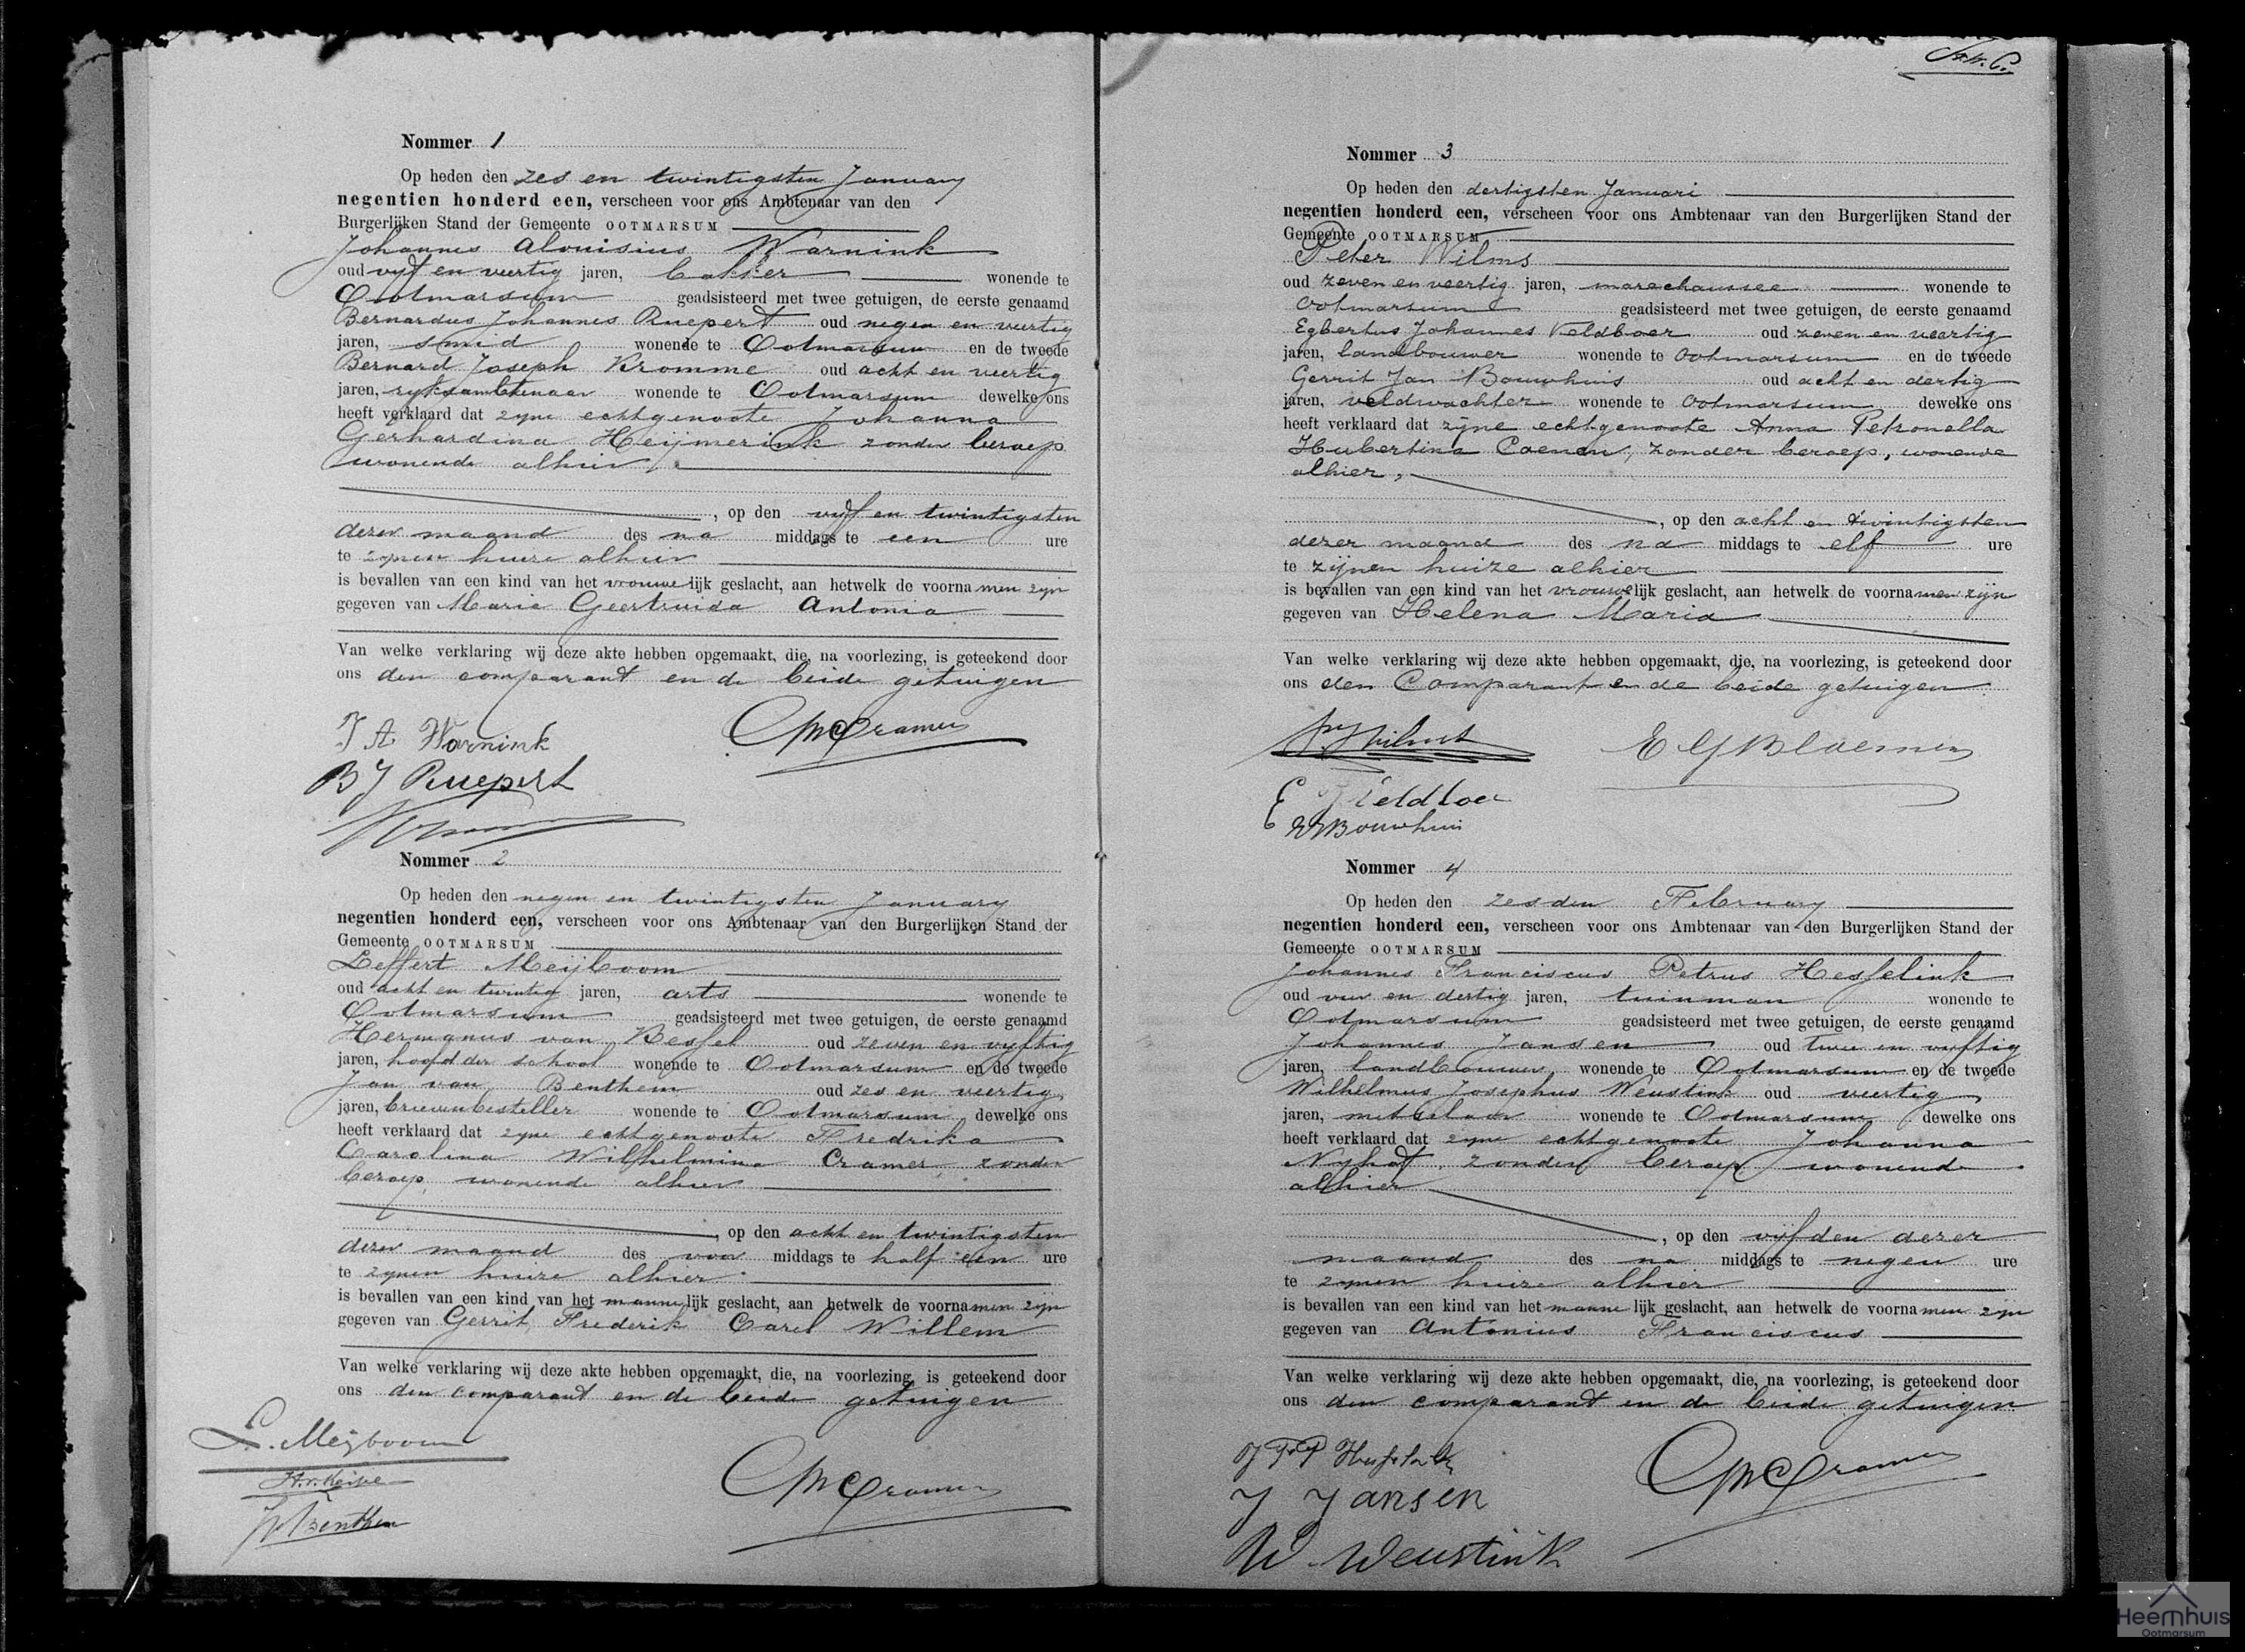 Nommer 1
Op heden den zes en twintigsten January
negentien honderd een, verscheen voor ons Ambtenaar van den
Burgerlijken Stand der Gemeente OOTMARSUM
Johannes Alouisius Warnink
oud vijf en veertig jaren, bakker wonende te
Ootmarsum geadsisteerd met twee getuigen, de eerste genaamd
Bernardus Johannes Ruepert oud negen en veertig
jaren, smid wonende te Ootmarsum en de tweede
Bernard Joseph Kromme oud acht en veertig
jaren, ryksambtenaar wonende te Ootmarsum dewelke ons
heeft verklaard dat zyne echtgenoote Johanna
Gerhardina Heijmerink zonder beroep
wonende alhier,
, op den vyf en twintigsten
dezer maand des na middags te een ure
te zynen huize alhier
is bevallen van een kind van het vrouwelijk geslacht, aan hetwelk de voornamen zyn
gegeven van Maria Geertruida Antonia
Van welke verklaring wij deze akte hebben opgemaakt, die, na voorlezing, is geteekend door
ons den comparant en de beide getuigen
J A Warnink
Cramer
B J Ruepert
Nommer 2
Op heden den negen en twintigsten January
negentien honderd een, verscheen voor ons Ambtenaar van den Burgerlijken Stand der
Gemeente OOTMARSUM
Leffert Meijboom
oud acht en twintig jaren, arts wonende te
Ootmarsum geadsisteerd met twee getuigen, de eerste genaamd
Hermanus van Bessel oud zeven en vyftig
jaren, hoofd der school wonende te Ootmarsum en de tweede
Jan van Benthem oud zes en veertig
jaren, brievenbesteller wonende te Ootmarsum dewelke ons
heeft verklaard dat zyne echtgenoote Fredrika
Carolina Wilhelmina Cramer zonder
beroep wonende alhier
, op den acht en twintigsten
dezer maand des voor middags te half een ure
te zynen huize alhier
is bevallen van een kind van het mannelijk geslacht, aan hetwelk de voornamen zyn
gegeven van Gerrit Frederik Carel Willem
Van welke verklaring wij deze akte hebben opgemaakt, die, na voorlezing, is geteekend door
ons den comparant en de beide getuigen
L. Meijboom
Cramer
Benthem
Nommer 3
Op heden den dertigsten Januari
negentien honderd een, verscheen voor ons Ambtenaar van den Burgerlijken Stand der
Gemeente OOTMARSUM
Peter Wilms
oud zeven en veertig jaren, marechaussee wonende te
Ootmarsum geadsisteerd met twee getuigen, de eerste genaamd
Egbertus Johannes Veldboer oud zeven en veertig
jaren, landbouwer wonende te Ootmarsum en de tweede
Gerrit Jan Bouwhuis oud acht en dertig
jaren, veldwachter wonende te Ootmarsum dewelke ons
heeft verklaard dat zijne echtgenoote Anna Petronella
Hubertina Coenen, zonder beroep, wonende
alhier,
, op den acht en twintigsten
dezer maand des na middags te elf ure
te zijnen huize alhier
is bevallen van een kind van het vrouwelijk geslacht, aan hetwelk de voornamen zijn
gegeven van Helena Maria
Van welke verklaring wij deze akte hebben opgemaakt, die, na voorlezing, is geteekend door
ons den Comparant en de beide getuigen
E G Bloemen
E J Veldboer
Bouwhuis
Nommer 4
Op heden den zesden February
negentien honderd een, verscheen voor ons Ambtenaar van den Burgerlijken Stand der
Gemeente OOTMARSUM
Johannes Franciscus Petrus Hesselink
oud vier en dertig jaren, tuinman wonende te
Ootmarsum geadsisteerd met twee getuigen, de eerste genaamd
Johannes Jansen oud twee en vyftig
jaren, landbouwer, wonende te Ootmarsum en de tweede
Wilhelmus Josephus Weustink oud veertig
jaren, metselaar wonende te Ootmarsum dewelke ons
heeft verklaard dat zyne echtgenoote Johanna
Nyhof, zonder beroep wonende
alhier
, op den vijfden dezer
maand des na middags te negen ure
te zynen huize alhier
is bevallen van een kind van het mannelijk geslacht, aan hetwelk de voornamen zyn
gegeven van Antonius Franciscus
Van welke verklaring wij deze akte hebben opgemaakt, die, na voorlezing, is geteekend door
ons den comparant en de beide getuigen
J F P Hesselink
Cramer
J Jansen
W. Weustink
Heemhuis
Ootmarsum